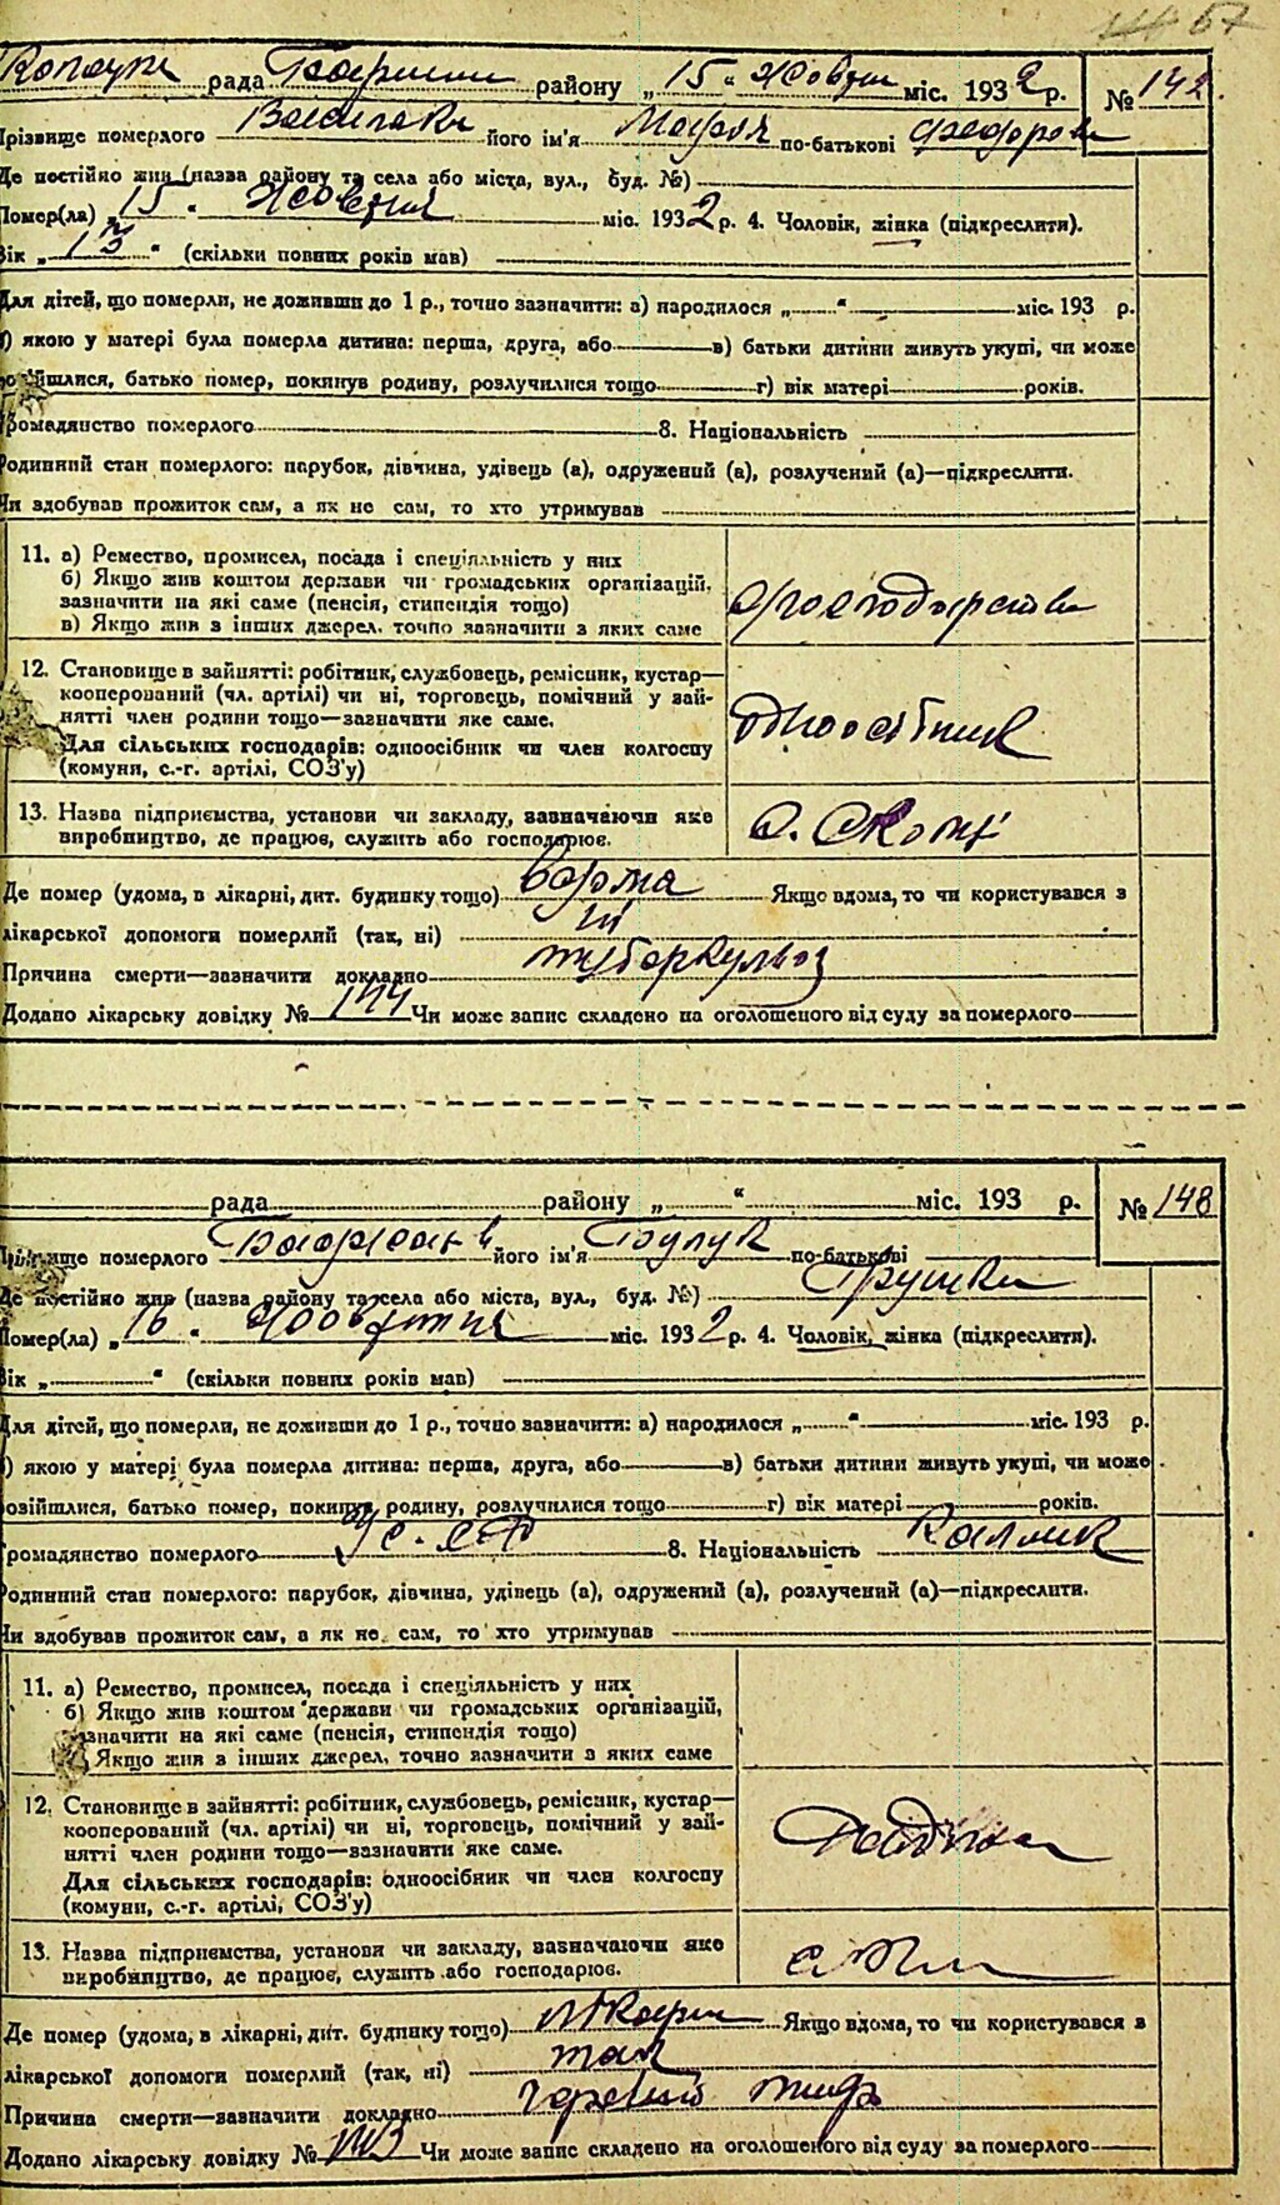 57
рада району „15“ Жовтня міс. 1932 р. № 142
Прізвище померлого його ім'я Марія по-батькові Федоров
Де постійно жив (назва району та села або міста, вул., буд. №)
Помер(ла) „15“ Жовтня міс. 1932 р. 4. Чоловік, жінка (підкреслити).
Вік „13“ (скільки повних років мав)
Для дітей, що померли, не доживши до 1 р., точно зазначити: а) народилося „ “ міс. 193 р.
) якою у матері була померла дитина: перша, друга, або в) батьки дитини живуть укупі, чи може
розійшлися, батько помер, покинув родину, розлучилися тощо г) вік матері років.
Громадянство померлого 8. Національність
Родинний стан померлого: парубок, дівчина, удівець (а), одружений (а), розлучений (а)—підкреслити.
Чи здобував прожиток сам, а як не сам, то хто утримував
11. а) Ремество, промисел, посада і спеціяльність у них
б) Якщо жив коштом держави чи громадських організацій, зазначити на які саме (пенсія, стипендія тощо)
в) Якщо жив з інших джерел, точно зазначити з яких саме
12. Становище в зайнятті: робітник, службовець, ремісник, кустар—
кооперований (чл. артілі) чи ні, торговець, помічний у зай-
нятті член родини тощо—зазначити яке саме. одноосібник
Для сільських господарів: одноосібник чи член колгоспу
(комуни, с.-г. артілі, СОЗ'у)
13. Назва підприємства, установи чи закладу, зазначаючи яке
виробництво, де працює, служить або господарює.
Де помер (удома, в лікарні, дит. будинку тощо) вдома Якщо вдома, то чи користувався з
лікарської допомоги померлий (так, ні) ні
Причина смерти—зазначити докладно туберкульоз
Додано лікарську довідку № 144 Чи може запис складено на оголошеного від суду за померлого
рада району „ “ міс. 193 р. № 148
Прізвище померлого його ім'я по-батькові
Де постійно жив (назва району та села або міста, вул., буд. №) Грушки
Помер(ла) „16“ Жовтня міс. 1932 р. 4. Чоловік, жінка (підкреслити).
Вік „ “ (скільки повних років мав)
Для дітей, що померли, не доживши до 1 р., точно зазначити: а) народилося „ “ міс. 193 р.
) якою у матері була померла дитина: перша, друга, або в) батьки дитини живуть укупі, чи може
розійшлися, батько помер, покинув родину, розлучилися тощо г) вік матері років.
Громадянство померлого 8. Національність Калмик
Родинний стан померлого: парубок, дівчина, удівець (а), одружений (а), розлучений (а)—підкреслити.
Чи здобував прожиток сам, а як не сам, то хто утримував
11. а) Ремество, промисел, посада і спеціяльність у них
б) Якщо жив коштом держави чи громадських організацій,
зазначити на які саме (пенсія, стипендія тощо)
Якщо жив з інших джерел, точно зазначити з яких саме
12. Становище в зайнятті: робітник, службовець, ремісник, кустар—
кооперований (чл. артілі) чи ні, торговець, помічний у зай-
нятті член родини тощо—зазначити яке саме.
Для сільських господарів: одноосібник чи член колгоспу
(комуни, с.-г. артілі, СОЗ'у)
13. Назва підприємства, установи чи закладу, зазначаючи яке
виробництво, де працює, служить або господарює.
Де помер (удома, в лікарні, дит. будинку тощо) Якщо вдома, то чи користувався з
лікарської допомоги померлий (так, ні) так
Причина смерти—зазначити докладно тиф
Додано лікарську довідку № Чи може запис складено на оголошеного від суду за померлого